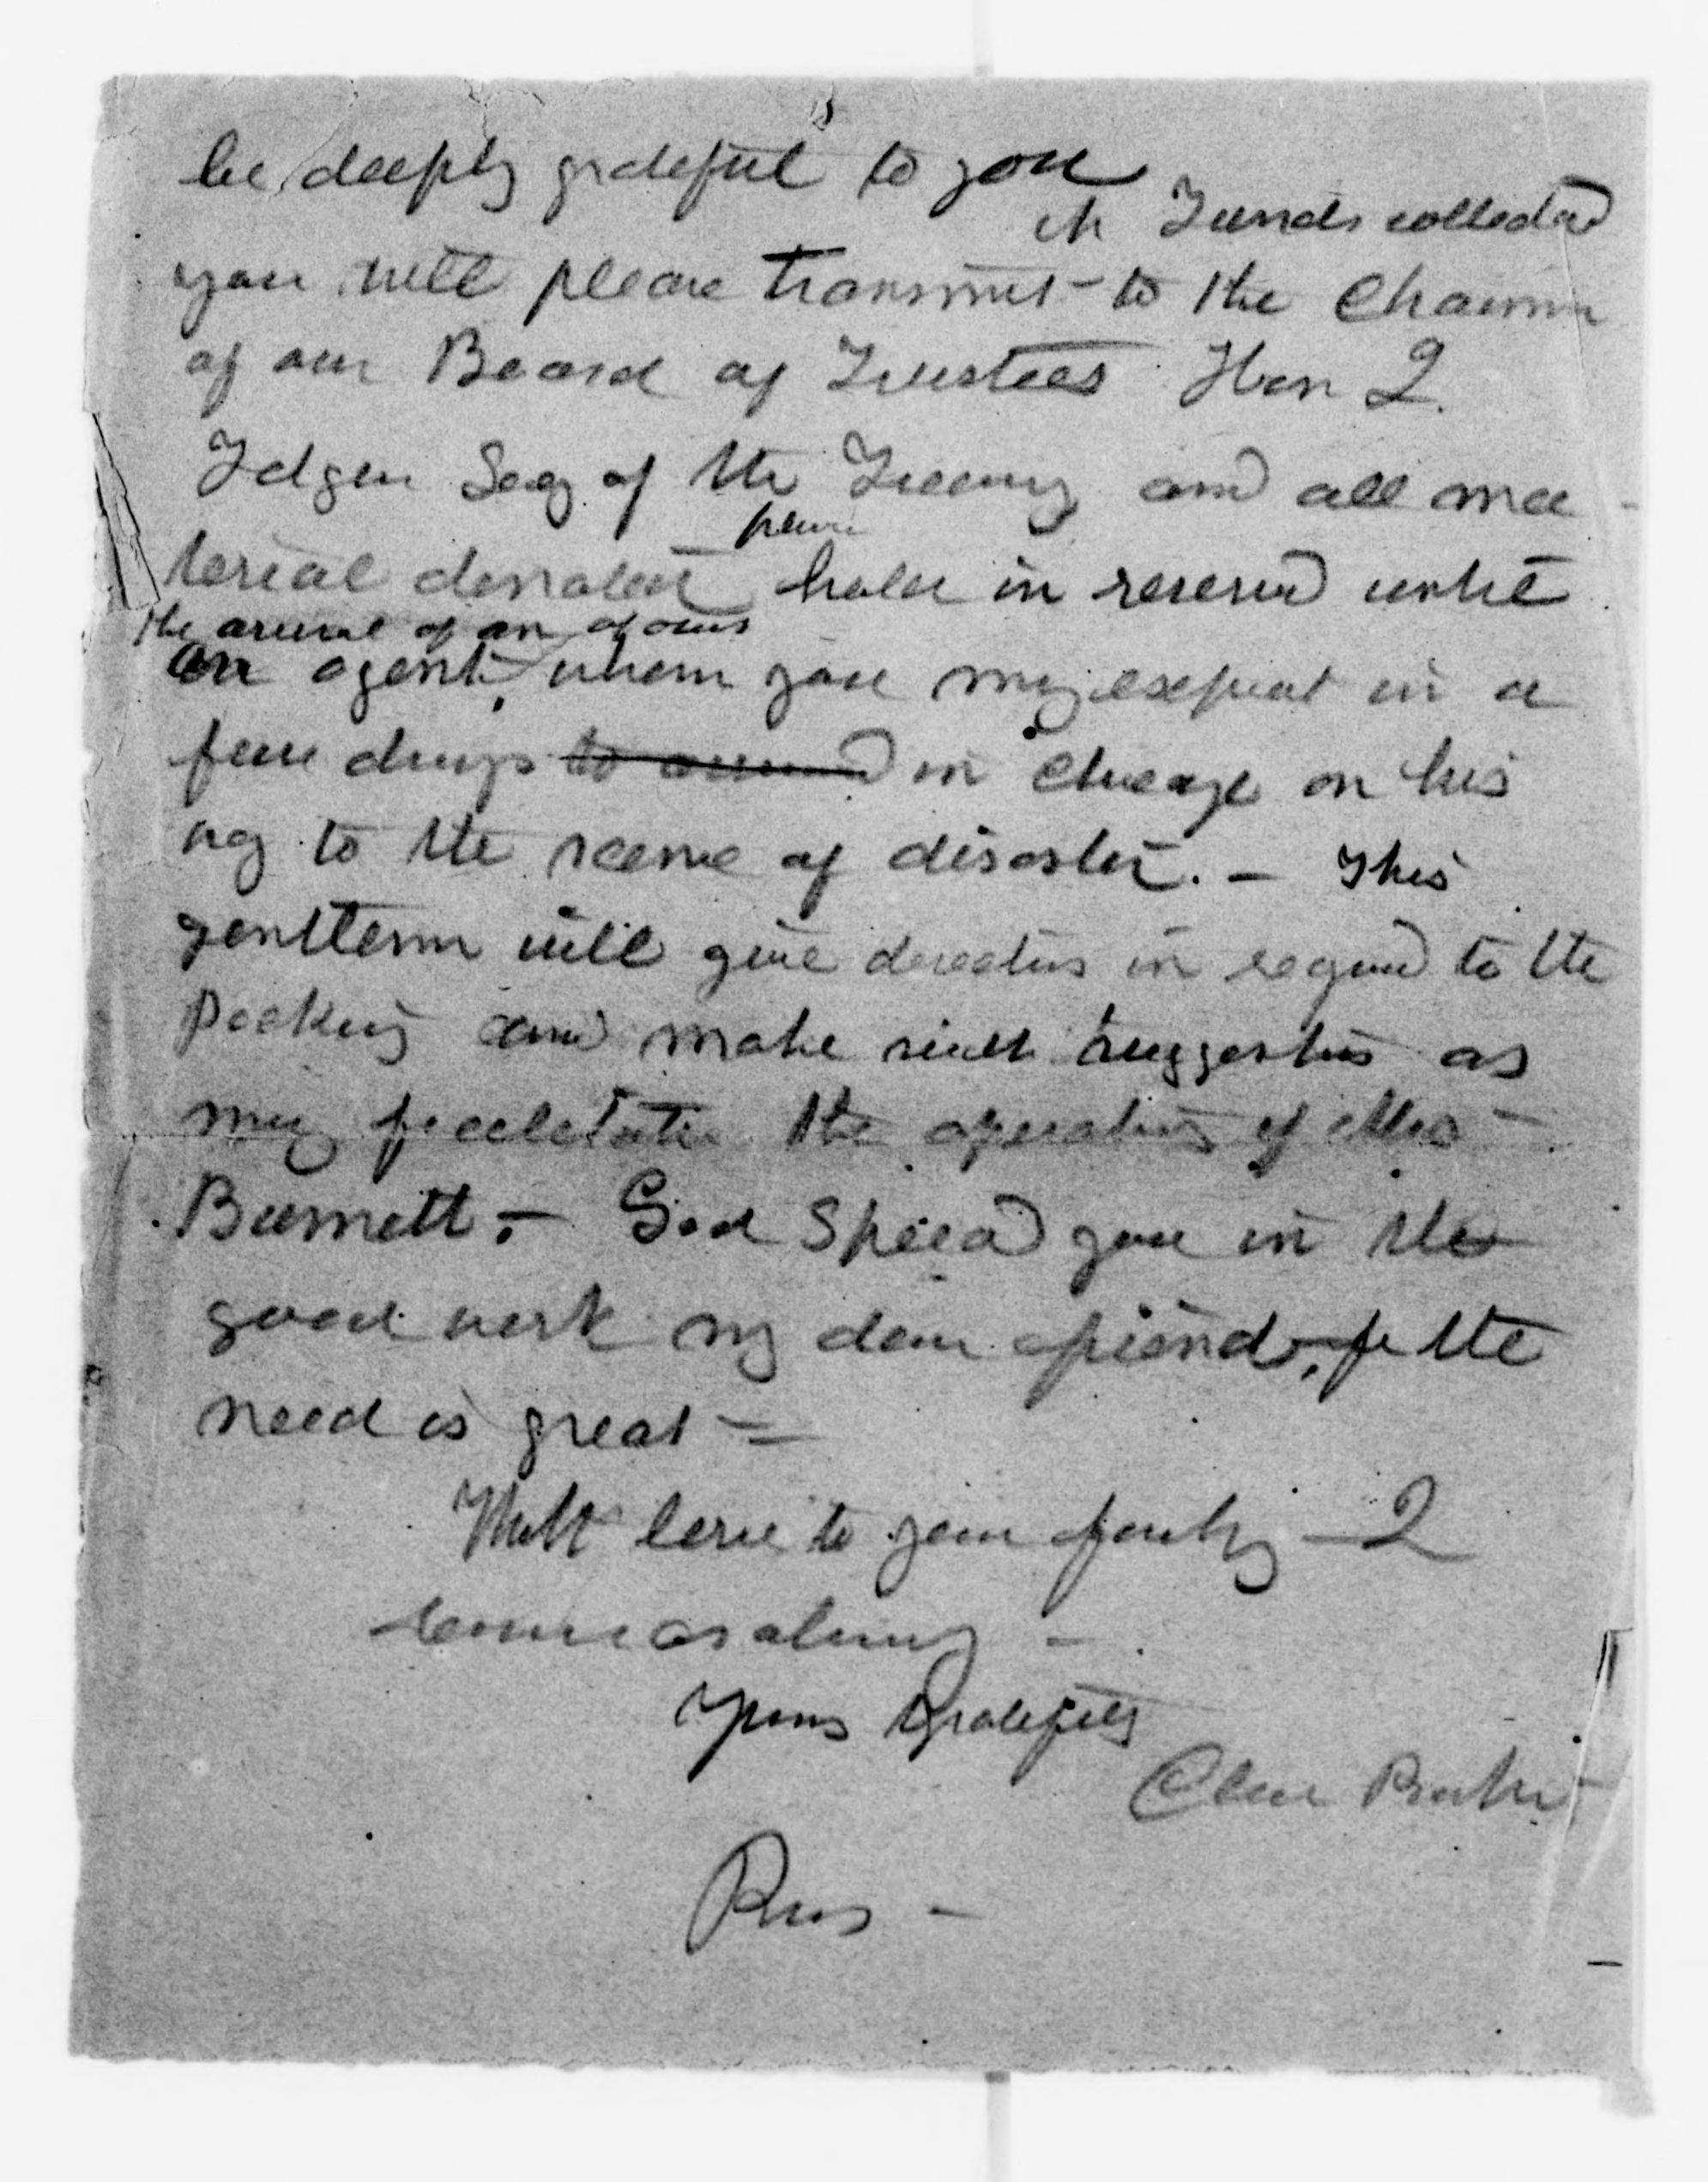 be deeply grateful to you
Funds collected
you will please transmit to the Chairman
of our Board of Trustees Hon
Folger Secy of the Treasury and all ma-
please
terial donated hold in reserve until
the arrival of an of ours
an agent, whom you may expect in a
few days in Chicago on his
way to the scene of disaster. — This
gentleman will give directions in regard to the
packing and make such suggestions as
may facilitate the operations of Mrs
Burnett. — God speed you in the
good work my dear friend, for the
need is great —
With love to your family — I
remain as always —
Yours gratefully
Clara Barton
Pres —